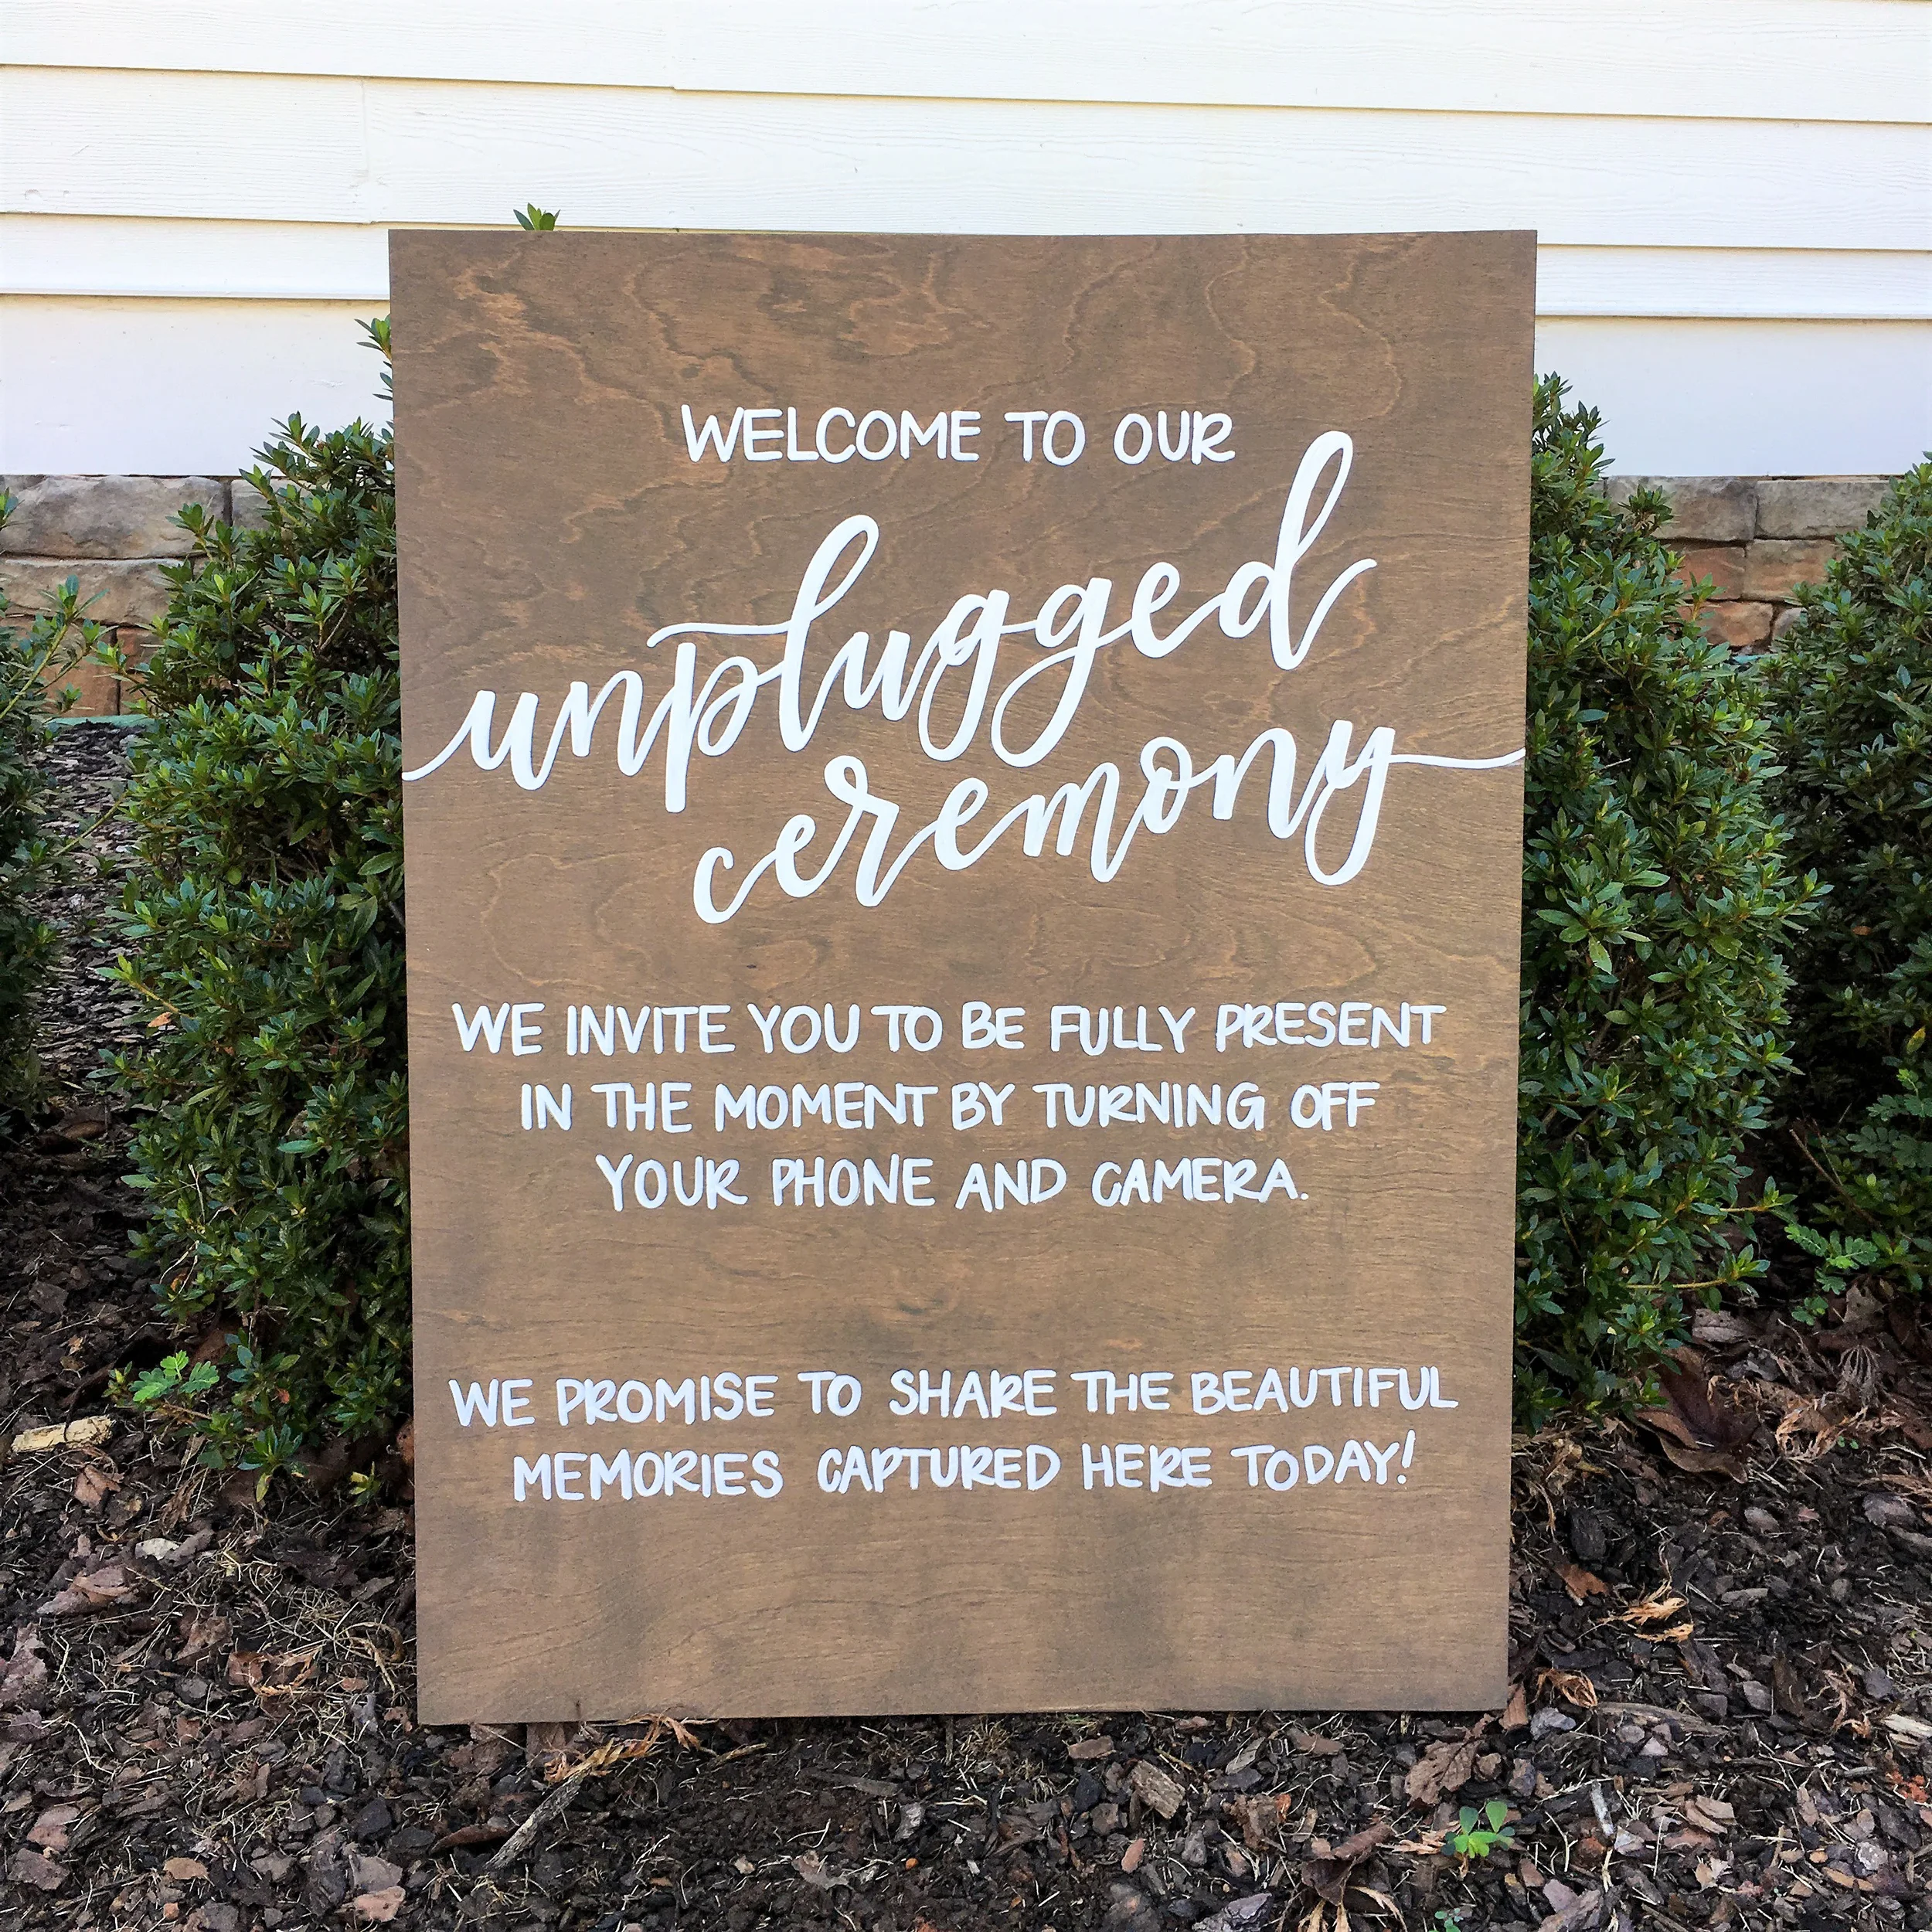 WELCOME TO OUR
unplugged
ceremony
WE INVITE YOU TO BE FULLY PRESENT
IN THE MOMENT BY TURNING OFF
YOUR PHONE AND CAMERA.
WE PROMISE TO SHARE THE BEAUTIFUL
MEMORIES CAPTURED HERE TODAY!